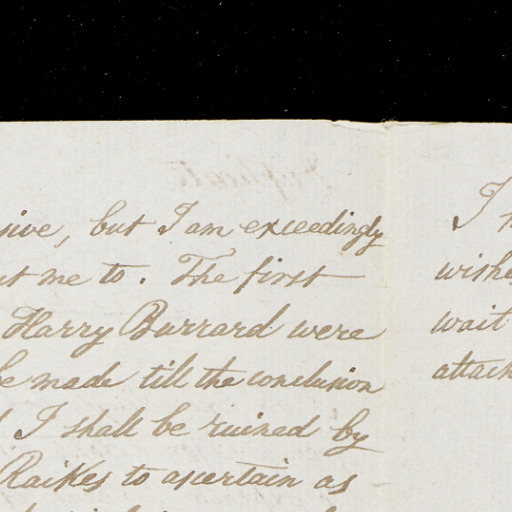 sive, but I am exceedingly
me to. The first
Harry Burrard were
be made till the conclusion
I shall be ruined by
Raikes to ascertain as
I
wishe
wait
attach